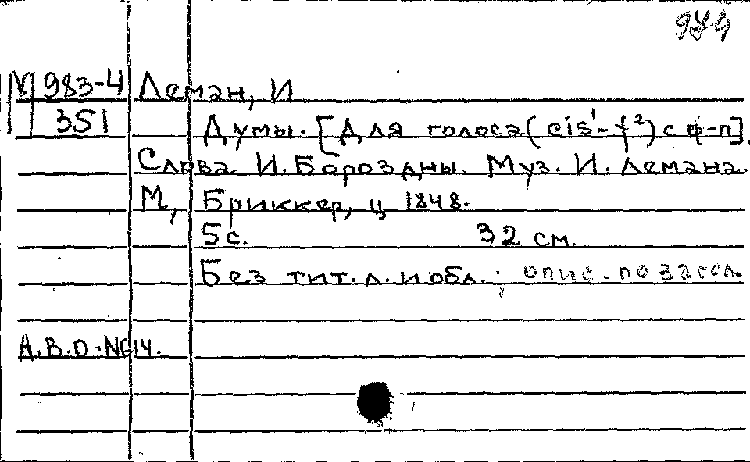 984
М 983-4 Леман, И
351 Думы. [Для голоса (cis¹-f²) с ф-п].
Слова И. Бороздны. Муз. И. Лемана.
М, Бриккер, ц 1848.
5с. 32 см.
Без тит. л. и обл.; опис. по загл.
A.B.D.